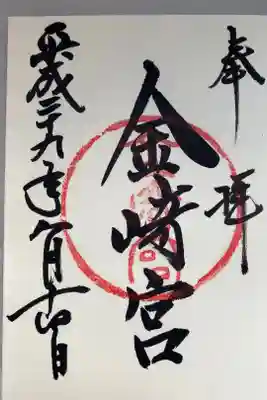 奉拝
金崎宮
平成二十九年八月十四日